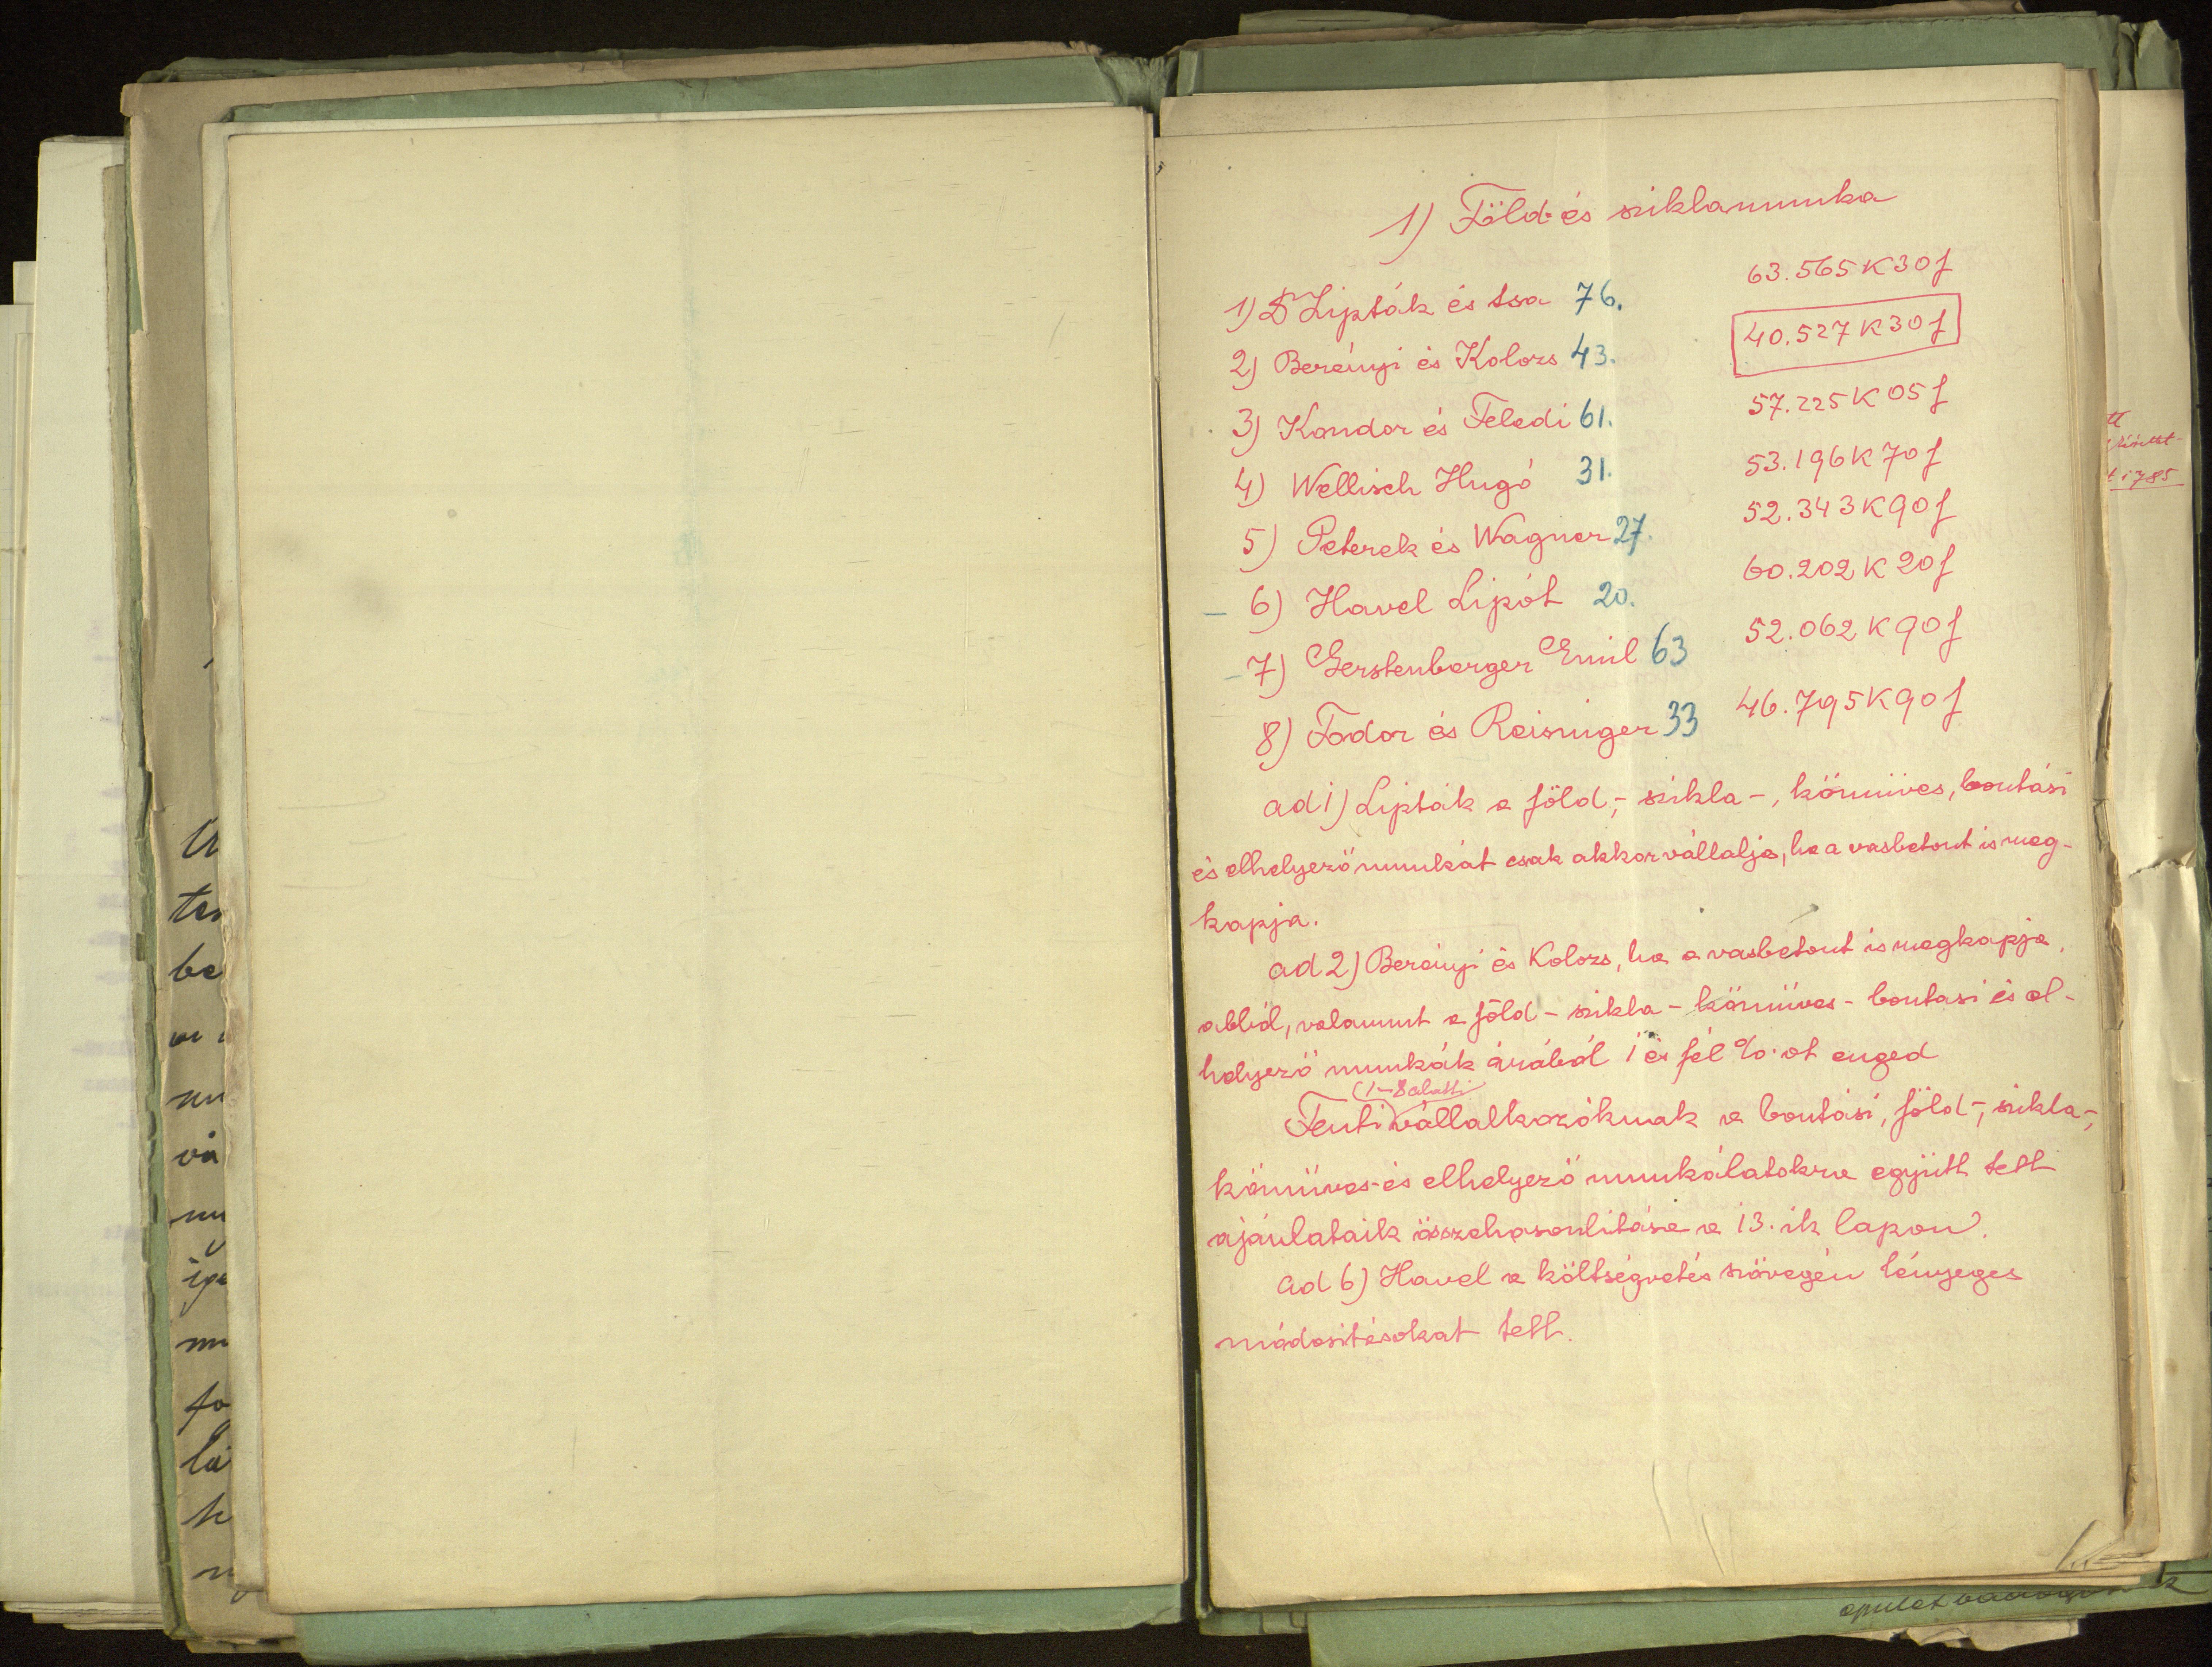 1) Föld- és sziklamunka
1) Dr Lipták és tsa 76. 63.565 K 30 f
2) Berényi és Kolozs 43. 40.527 K 30 f
3) Kandor és Feledi 61. 57.225 K 05 f
4) Wellisch Hugó 31. 53.196 K 70 f
5) Peterek és Wagner 27. 52.343 K 90 f
6) Havel Lipót 20. 60.202 K 20 f
7) Gerstenberger Emil 63 52.062 K 90 f
8) Fodor és Reisinger 33 46.795 K 90 f
ad 1) Lipták a föld-, szikla-, kőmüves, bontási
és elhelyező munkát csak akkor vállalja, ha a vasbetont is meg-
kapja.
ad 2) Berényi és Kolozs, ha a vasbetont is megkapja,
abból, valamint a föld- szikla- kőmüves- bontasi és el-
helyező munkák árából 1 és fél %-ot enged
(1-8 alatti)
Fenti vállalkozóknak a bontási, föld-, szikla-,
kőmüves- és elhelyező munkálatokra együtt tett
ajánlataik összehasonlitása a 13.ik lapon.
ad 6) Havel a költségvetés szövegén lényeges
módositásokat tett.
A
be
vá
fo
lá
1785